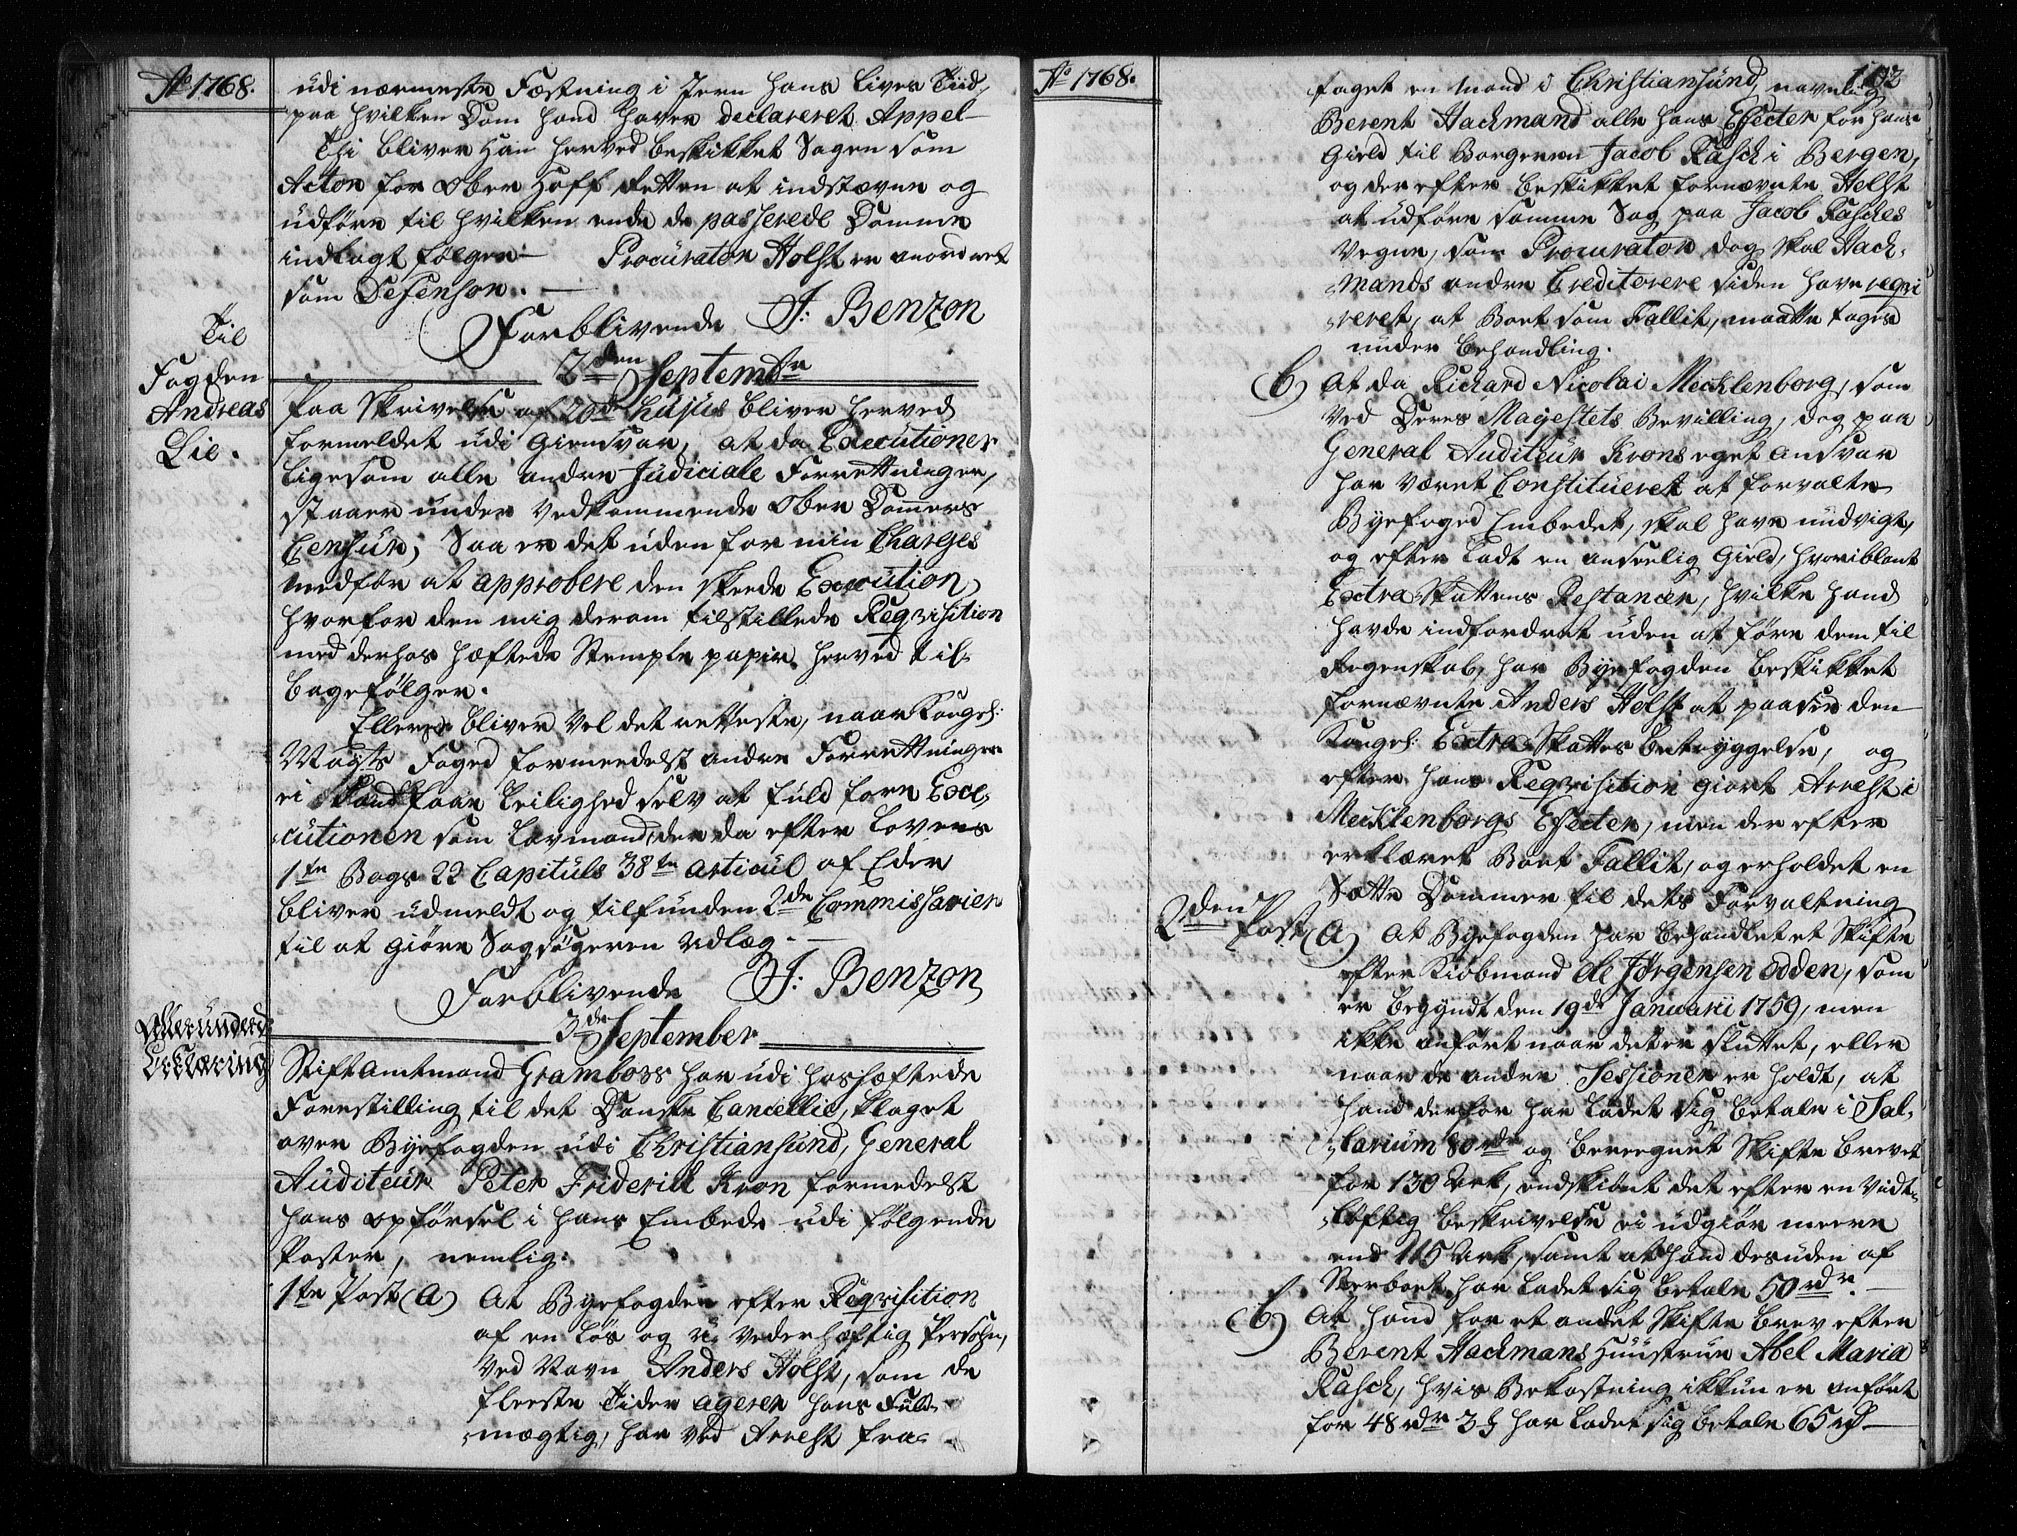 Ao 1768.
udi nærmeste Fæstning i Jern hans Lives Tiid,
paa hvilken Dom hand haver declareret Appel
Thi bliver Han herved beskikket Sagen som
Actor for Ober Hoff Retten at indstævne og
udføre til hvilken ende de passerede Domme
indlagt følger. Procurator Holst er anordnet
som Defensor.
Forblivende J: Benzon
2den Septembr
Til
Fogden
Andreas
Lie.
Paa Skrivelse af 20de hujus bliver herved
formeldet udi Giensvar, at da Executioner
ligesom alle andre Judiciale Forrettninger,
staaer under vedkommende Ober Dommers
Censur, Saa er det uden for min Charges
medfør at approbere den skeede Execution,
hvorfor den mig derom tilstillede Reqvisition
med derhos hæftede Stemple papir, herved til-
bagefølger.
Ellers bliver vel det retteste, naar Kongel:
Mayts Foged formedelst andre Forrettninger
ei Sand faar Leilighed selv at fuldføre Exe-
cutionen som Laugmand, der da efter Lovens
1te Bogs 22 Capituls 38te Articul af Eder
bliver udmeldt og tilfunden 2de Commissarier
til at giøre Sagsøgeren Udlæg.
Forblivende J: Benzon
3de September
Allerunderd:
Erklæring
Stiftamtmand Grambow har udi hoshæftede
Forestilling til det Danske Cancellie, klaget
over Byefogden udi Christiansund, General
Auditeur Peter Friderich Kron formedelst
hans opførsel i hans Embede udi følgende
Poster, nemlig:
1te Post (a) At Byefogden efter Reqvisition
af en løs og u-vederhæftig Persohn,
ved Navn Anders Holst, som de
fleeste Tider agerer hans Fuld-
mægtig, har ved Arrest fra-
Ao 1768.
102
taget en Mand i Christiansund, navnlig
Berent Hackmand alle hans Effecter for hans
Gield til Borgeren Jacob Rasch i Bergen,
og derefter beskikket fornævnte Holst
at udføre samme Sag paa Jacob Rasches
Vegne, som Procurator, dog skal Hach-
mands andre Creditorere siden have reqvi
reret, at Boet som Fallit, maatte tages
under behandling.
b) At da Richard Nicolai Mecklenborg, som
ved Deres Majestets Bevilling, dog paa
General Auditeur Krons eget Ansvar
har været Constitueret at forvalte
Byefoged Embedet, skal have undvigt,
og efterladt en anseelig Gield, hvoriblant
Extra Skattens Restancer, hvilke hand
havde indfordret uden at føre dem til
Regenskab, har Byefogden beskikket
fornævnte Anders Holst at paasee den
Kongel: Extra Skattes betryggelse, og
efter hans Reqvisition giort Arrest i
Mecklenborgs Effecter, men derefter
erklæret Boet Fallit, og erholdet en
Sætte Dommer til dets Forvaltning
2den Post (a) At Byefogden har behandlet et Skifte
efter Kiøbmand Ole Jørgensen Odden, som
er begyndt den 19de Januarii 1759, men
ikke anført naar det er sluttet, eller
naar de andre Sessioner er holdt, at
hand derfor har ladet sig betale i Sal-
larium 80 rdr og beregnet Skifte Brevet
for 130 Ark, endskiønt det efter en vidt-
løftig beskrivelse ei udgiør meere
end 115 Ark, samt at hand desuden af
Sterboet har ladet sig betale 50 rdr.
b) At hand for et andet Skifte Brev efter
Berent Hackmans Huustrue Abel Maria
Rasch, hvis Bekostning ikkun er anført
for 48 rdr 3 ß har ladet sig betale 65 rd